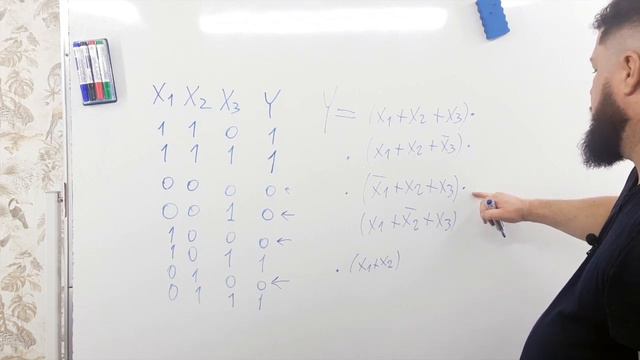 X₁ X₂ X₃ Y
1 1 0 1
1 1 1 1
0 0 0 0 ←
0 0 1 0 ←
1 0 0 0 ←
1 0 1 1
0 1 0 0 ←
0 1 1 1
Y = (x₁ + x₂ + x₃) ·
· (x₁ + x₂ + x̄₃) ·
· (x̄₁ + x₂ + x₃) ·
(x₁ + x̄₂ + x₃)
· (x₁+x₂)